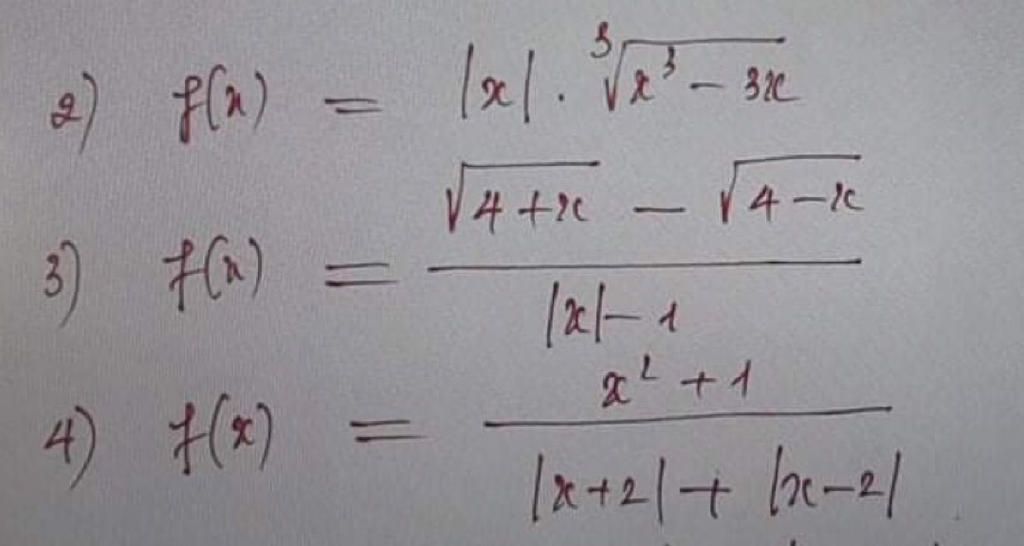 2) f(x) = |x| . ∛(x³ - 3x)
3) f(x) = (√(4+x) - √(4-x)) / (|x| - 1)
4) f(x) = (x² + 1) / (|x+2| + |x-2|)